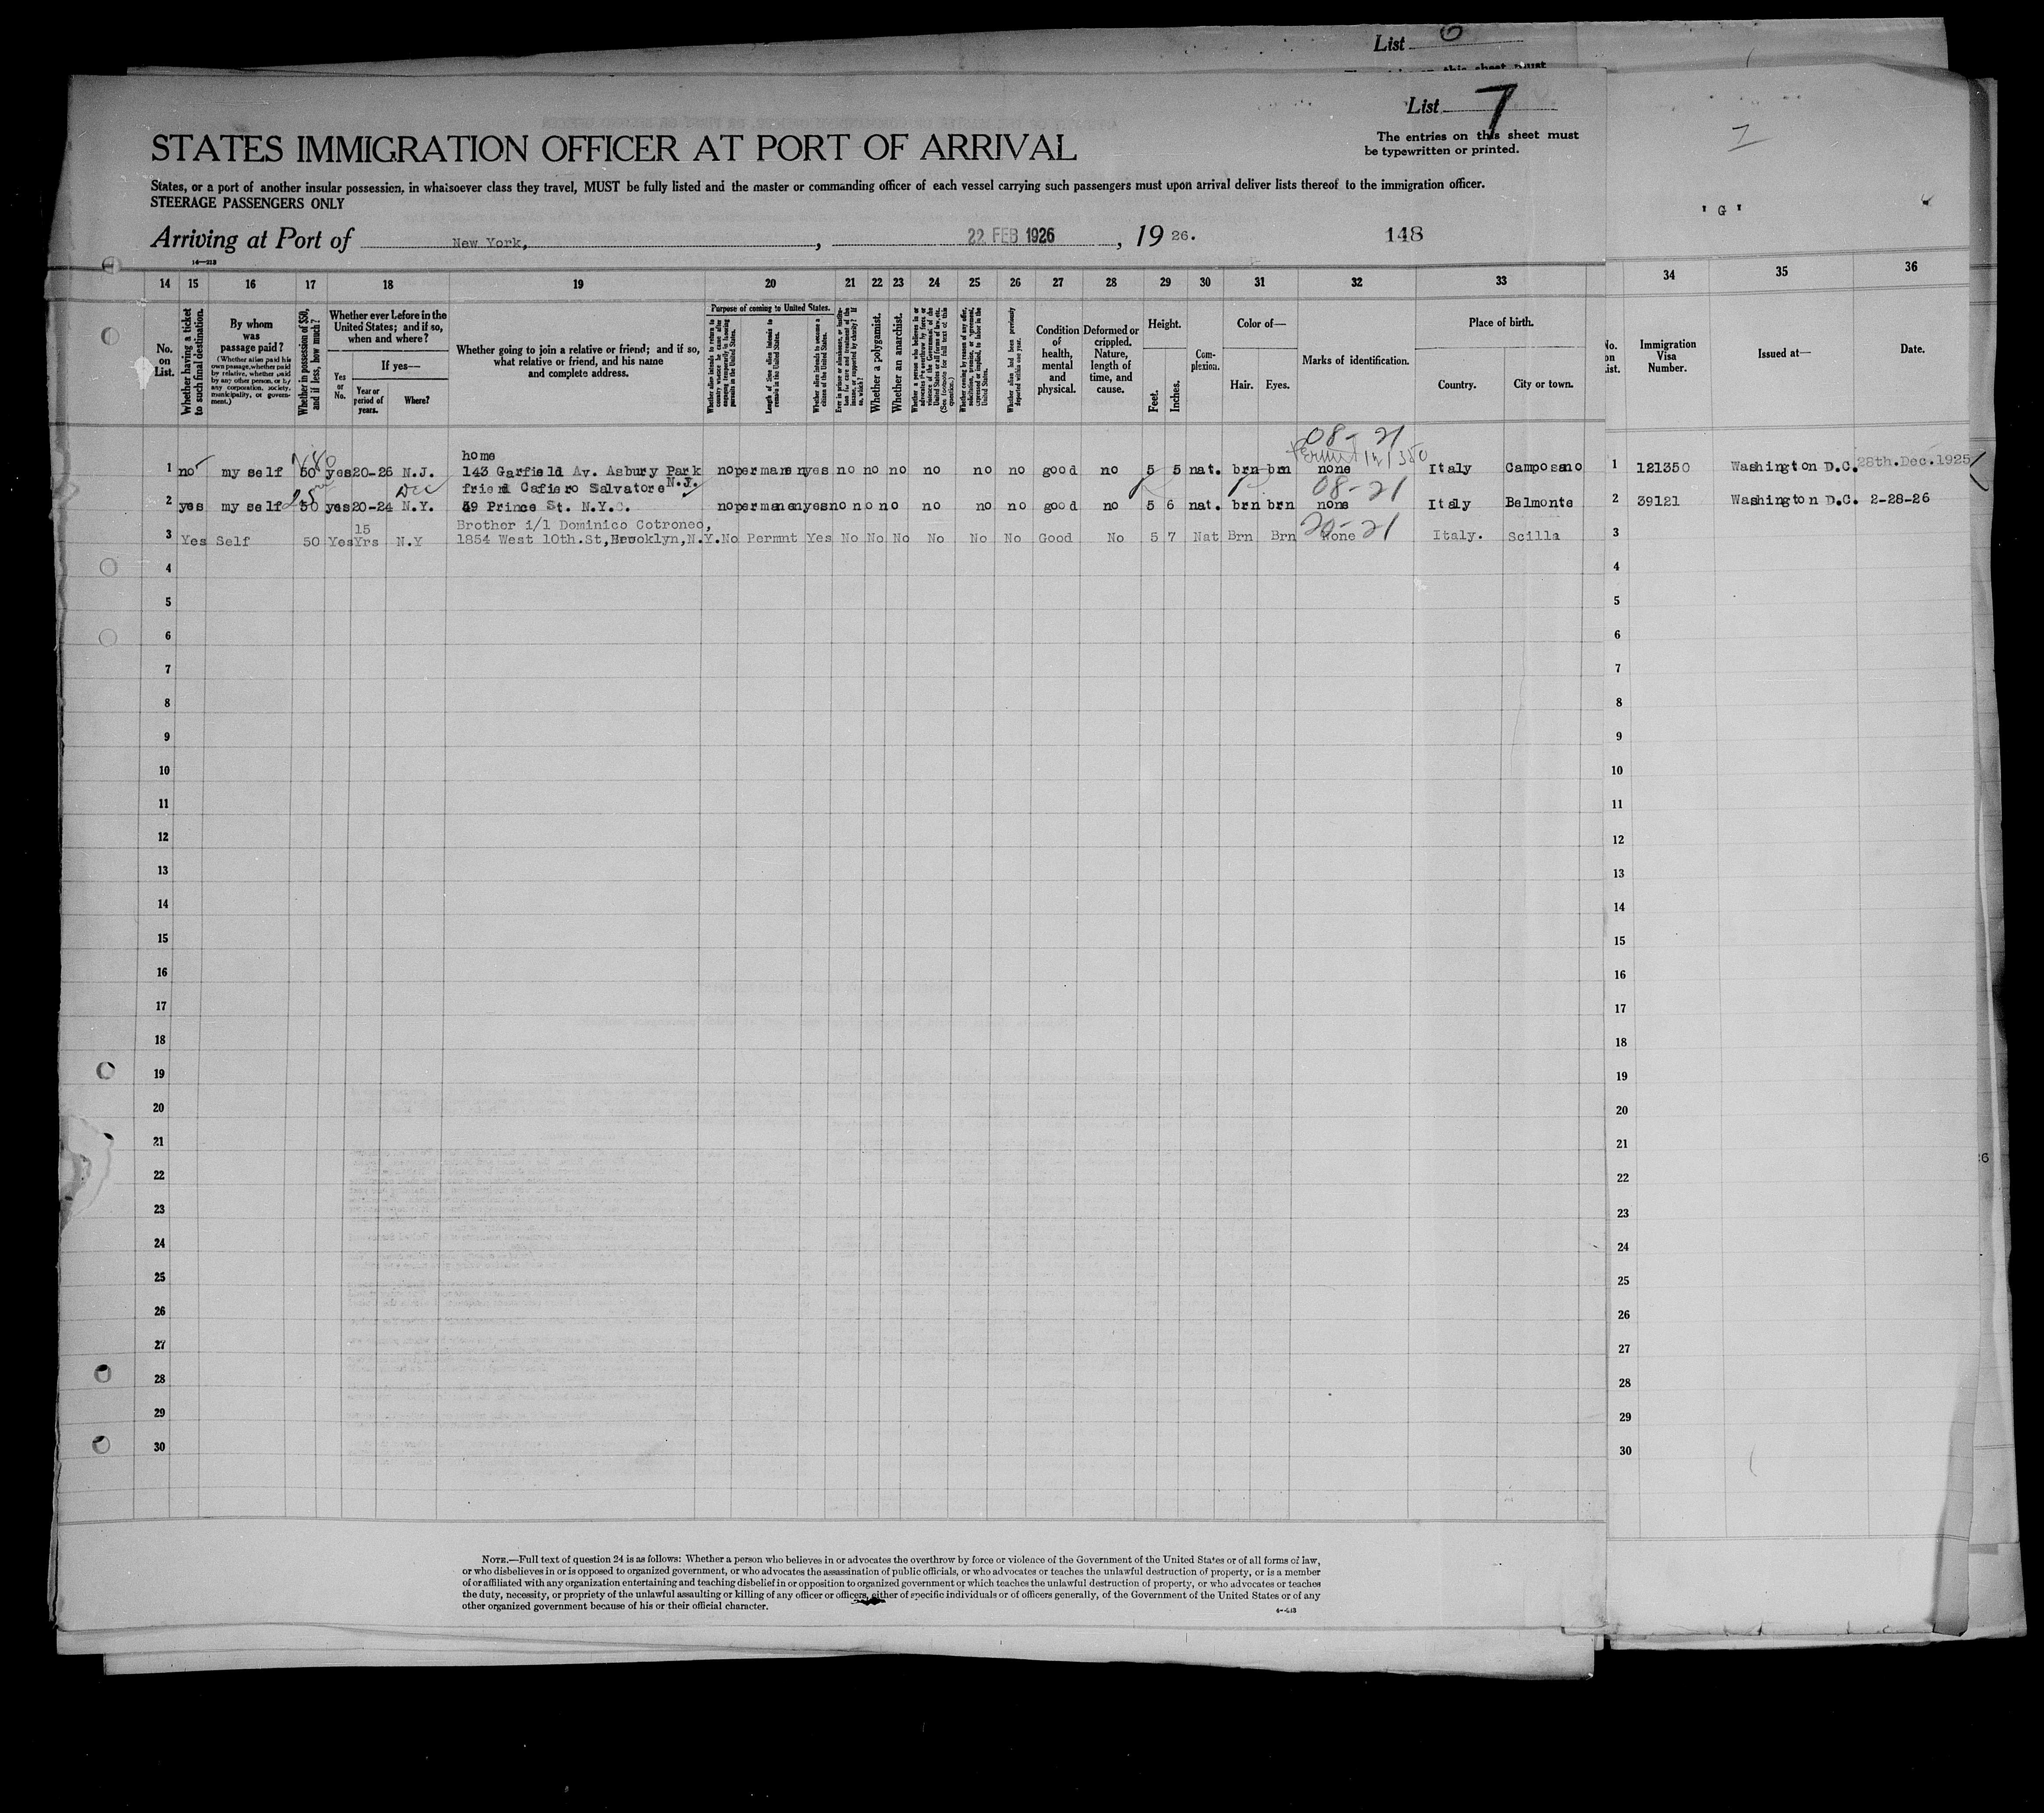 List 6
List 7
The entries on this sheet must
be typewritten or printed.
STATES IMMIGRATION OFFICER AT PORT OF ARRIVAL
States, or a port of another insular possession, in whatsoever class they travel, MUST be fully listed and the master or commanding officer of each vessel carrying such passengers must upon arrival deliver lists thereof to the immigration officer.
STEERAGE PASSENGERS ONLY
' G '
Arriving at Port of New York, , 22 FEB 1926 , 19 26. 148
14 15 16 17 18 19 20 21 22 23 24 25 26 27 28 29 30 31 32 33 34 35 36
No. on List.
Whether having a ticket to such final destination.
By whom was passage paid?
(Whether alien paid his own passage, whether paid by relative, whether paid by any other person, or by any corporation, society, municipality, or government.)
Whether in possession of $50, and if less, how much?
Whether ever before in the United States; and if so, when and where?
Yes or No.
If yes—
Year or period of years.
Where?
Whether going to join a relative or friend; and if so, what relative or friend, and his name and complete address.
Purpose of coming to United States.
Length of time alien intends to remain in the United States.
Whether alien intends to become a citizen of the United States.
Whether a polygamist.
Whether an anarchist.
Whether alien had been previously deported within one year.
Condition of health, mental and physical.
Deformed or crippled. Nature, length of time, and cause.
Height.
Feet. Inches.
Complexion.
Color of—
Hair. Eyes.
Marks of identification.
Place of birth.
Country. City or town.
Immigration Visa Number.
Issued at—
Date.
08-21
Permit 121350
home
1 no my self 50 yes 20-26 N.J. 143 Garfield Av. Asbury Park N.J. no permanen yes no no no no no no good no 5 5 nat. brn brn none Italy Camposano 1 121350 Washington D.C. 28th.Dec.1925
friend Cafiero Salvatore 08-21
2 yes my self 50 yes 20-24 N.Y. 39 Prince St. N.Y.C. no permanen yes no no no no no no good no 5 6 nat. brn brn none Italy Belmonte 2 39121 Washington D.C. 2-28-26
15 Brother i/l Dominico Cotroneo, 20-21
3 Yes Self 50 Yes Yrs N.Y 1854 West 10th.St,Brooklyn,N.Y. No Permnt Yes No No No No No No Good No 5 7 Nat Brn Brn None Italy. Scilla 3
4 4
5 5
6 6
7 7
8 8
9 9
10 10
11 11
12 12
13 13
14 14
15 15
16 16
17 17
18 18
19 19
20 20
21 21
22 22
23 23
24 24
25 25
26 26
27 27
28 28
29 29
30 30
NOTE.—Full text of question 24 is as follows: Whether a person who believes in or advocates the overthrow by force or violence of the Government of the United States or of all forms of law,
or who disbelieves in or is opposed to organized government, or who advocates the assassination of public officials, or who advocates or teaches the unlawful destruction of property, or is a member
of or affiliated with any organization entertaining and teaching disbelief in or opposition to organized government or which teaches the unlawful destruction of property, or who advocates or teaches
the duty, necessity, or propriety of the unlawful assaulting or killing of any officer or officers, either of specific individuals or of officers generally, of the Government of the United States or of any
other organized government because of his or their official character.